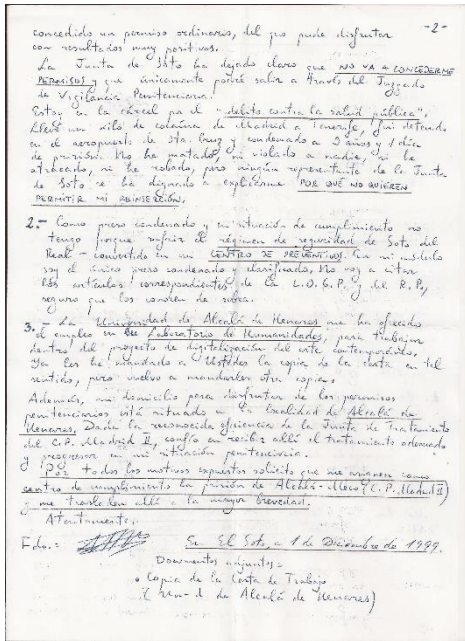 -2-
concedido un permiso ordinario, del que pude disfrutar
con resultados muy positivos.
La Junta de Soto ha dejado claro que NO VA A CONCEDERME
PERMISOS y que únicamente podré salir a través del Juzgado
de Vigilancia Penitenciaria.
Estoy en la cárcel por el "delito contra la salud pública".
Llevé un kilo de cocaína de Madrid a Tenerife, fui detenido
en el aeropuerto de Sta. Cruz y condenado a 9 años y 1 día
de prisión. No he matado, ni violado a nadie, ni he
atracado, ni he robado, pero ningún representante de la Junta
de Soto se ha dignado a explicarme POR QUÉ NO QUIEREN
PERMITIR MI REINSERCIÓN.
2.- Como preso condenado y en situación de cumplimiento no
tengo porque sufrir el régimen de seguridad de Soto del
Real - convertido en un CENTRO DE PREVENTIVOS. En mi módulo
soy el único preso condenado y clasificado. No voy a citar
los artículos correspondientes de la L.O.G.P. y del R.P.,
seguro que los conocen de sobra.
3.- La Universidad de Alcalá de Henares me ha ofrecido
el empleo en su Laboratorio de Humanidades, para trabajar
dentro del proyecto de digitalización del arte contemporáneo.
Ya les he mandado a Ustedes la copia de la carta en tal
sentido, pero vuelvo a mandarles otra copia.
Además, mi domicilio para disfrutar de los permisos
penitenciarios está situado en la localidad de Alcalá de
Henares. Dada la reconocida eficiencia de la Junta de Tratamiento
del C.P. Madrid II, confío en recibir allí el tratamiento adecuado
y progresar en mi situación penitenciaria.
Por todos los motivos expuestos solicito que me asignen como
centro de cumplimiento la prisión de Alcalá-Meco (C.P. Madrid II)
y me trasladen allí a la mayor brevedad.
Atentamente,
Fdo.:
En El Soto, a 1 de Diciembre de 1999.
Documentos adjuntos:
o Copia de la Carta de Trabajo
de Alcalá de Henares)